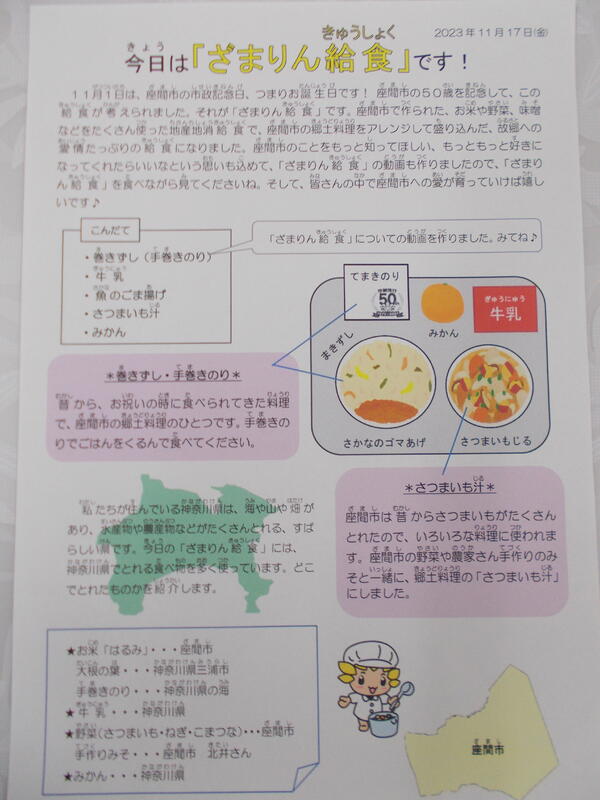 2023年11月17日(金)
今日は「ざまりん給食」です！
11月1日は、座間市の市政記念日、つまりお誕生日です！座間市の50歳を記念して、この
給食が考えられました。それが「ざまりん給食」です。座間市で作られた、お米や野菜、味噌
などをたくさん使った地産地消給食で、座間市の郷土料理をアレンジして盛り込んだ、故郷への
愛情たっぷりの給食になりました。座間市のことをもっと知ってほしい、もっともっと好きに
なってくれたらいいなという思いも込めて、「ざまりん給食」の動画も作りましたので、「ざまり
ん給食」を食べながら見てくださいね。そして、皆さんの中で座間市への愛が育っていけば嬉し
いです♪
こんだて
・巻きずし（手巻きのり）
・牛乳
・魚のごま揚げ
・さつまいも汁
・みかん
「ざまりん給食」についての動画を作りました。みてね♪
てまきのり
50
みかん
ぎゅうにゅう
牛乳
まきずし
さかなのゴマあげ
さつまいもじる
＊巻きずし・手巻きのり＊
昔から、お祝いの時に食べられてきた料理
で、座間市の郷土料理のひとつです。手巻きの
りでごはんをくるんで食べてください。
＊さつまいも汁＊
座間市は昔からさつまいもがたくさん
とれたので、いろいろな料理に使われま
す。座間市の野菜や農家さん手作りのみ
そと一緒に、郷土料理の「さつまいも汁」
にしました。
私たちが住んでいる神奈川県は、海や山や畑が
あり、水産物や農産物などがたくさんとれる、すば
らしい県です。今日の「ざまりん給食」には、
神奈川県でとれる食べ物を多く使っています。どこ
でとれたものかを紹介します。
★お米「はるみ」・・・座間市
大根の葉・・・神奈川県三浦市
手巻きのり・・・神奈川県の海
★牛乳・・・神奈川県
★野菜（さつまいも・ねぎ・こまつな）・・・座間市
手作りみそ・・・座間市 北井さん
★みかん・・・神奈川県
座間市